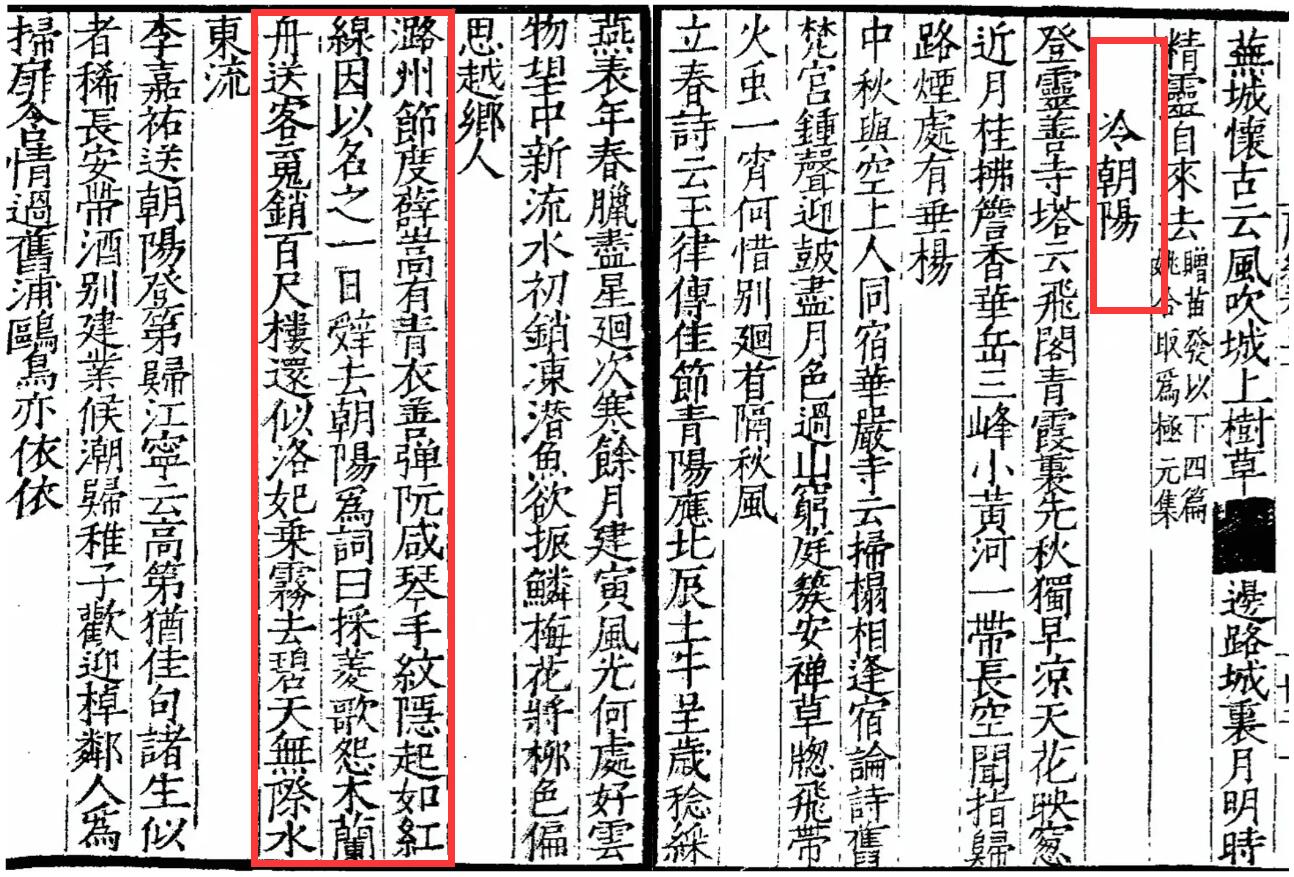 蕪城懷古云風吹城上樹草邊路城裏月明時
精靈自來去贈苗發以下四篇
姚合取爲極元集
冷朝陽
登靈善寺塔云飛閣青霞裏先秋獨早凉天花映窓
近月桂拂簷香華岳三峰小黃河一帶長空聞指歸
路煙處有垂楊
中秋與空上人同宿華嚴寺云掃榻相逢宿論詩舊
梵宫鍾聲迎鼓盡月色過山窮庭簇安禅草牎飛帶
火虫一宵何惜别廻首隔秋風
立春詩云玉律傳佳節青陽應北辰土牛呈歲稔綵
燕表年春臘盡星廻次寒餘月建寅風光何處好雲
物望中新流水初銷凍潜魚欲振鱗梅花將栁色偏
思越鄉人
潞州節度薛嵩有青衣善弹阮咸琴手紋隱起如紅
線因以名之一日辭去朝陽爲詞曰採菱歌怨木蘭
舟送客䰟銷百尺樓還似洛妃乗霧去碧天無際水
東流
李嘉祐送朝陽登第歸江寧云高第猶佳句諸生似
者稀長安帶酒别建業候潮歸稚子歡迎棹鄰人爲
掃扉含情過舊浦鷗鳥亦依依